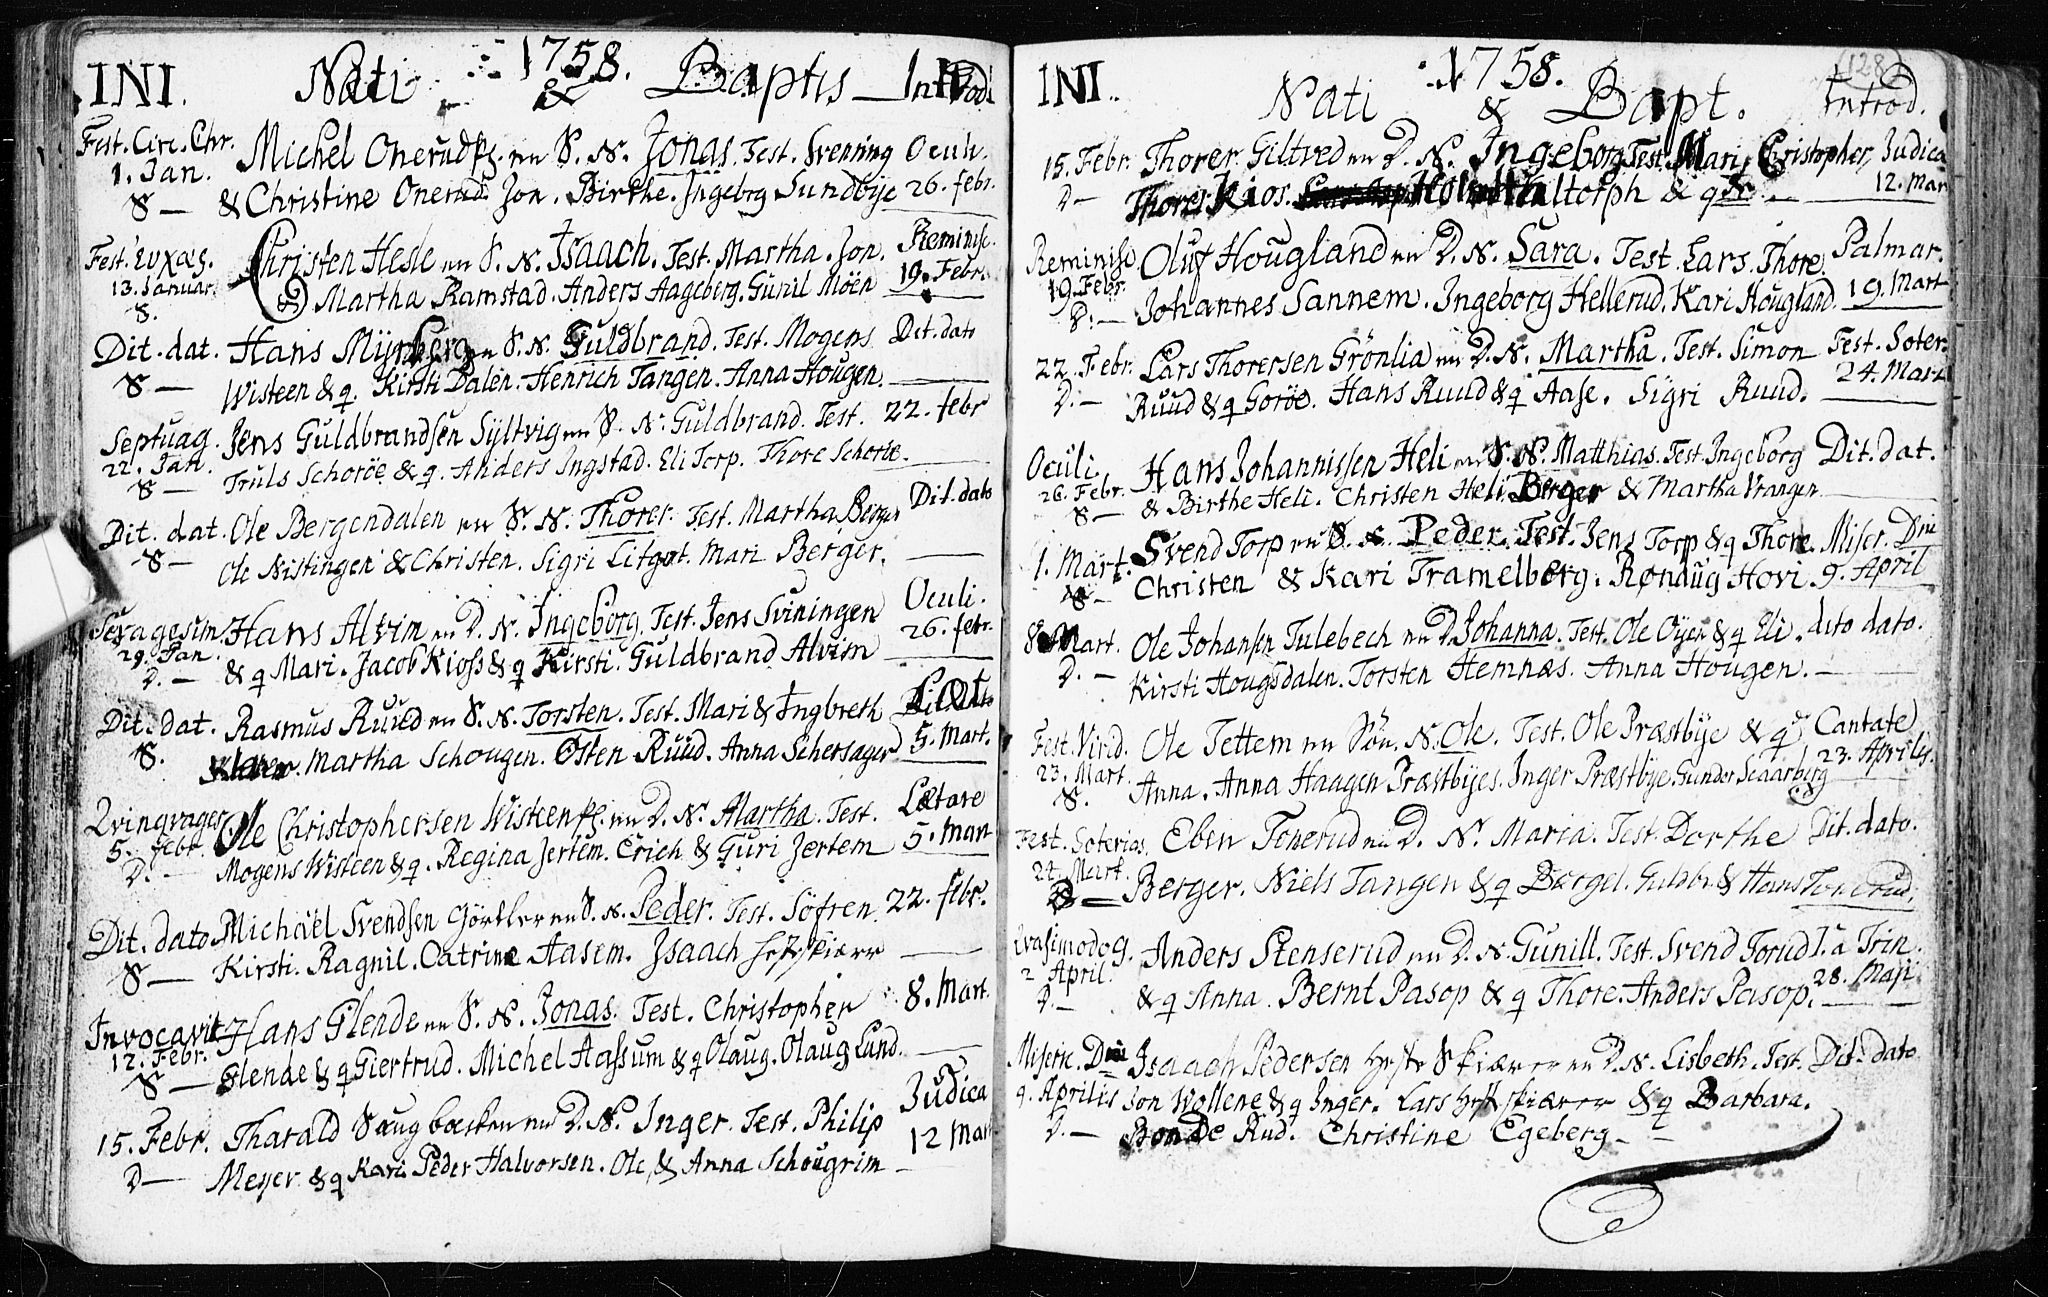 1758.
INI. Nati & Baptis Introd.
Fest. Circ. Chr. Michel Onerud en S. N. Jonas. Test. Svenning Oculi.
1. Jan. & Christine Onerud. Jon. Birthe. Ingeborg Sundbÿe 26. febr.
S —
Fest. Christen Hesle en S. N. Isaach. Test. Martha. Jon. Reminisc.
13. Januar. Martha Ramstad. Anders Aageberg. Gunil Möen 19. Febr.
S.
Dit. dat. Hans Mÿrberg en S. N. Guldbrand. Test. Mogens Dit. dato
S — Wisteen & q. Kirsti Dalen. Henrich Tangen. Anna Hougen.
Septuag. Jens Guldbrandsen Sÿltvig en S. N. Guldbrand. Test. 22. febr
22. Jan. Truls Schoröe & q. Anders Ingstad. Eli Torp. Thore Schoröe.
S —
Dit. dat. Ole Bergendalen en S. N. Thorer. Test. Martha Berger Dit. dato
S — Ole Nistingen & Christen. Sigri Mari Berger.
Sexagesim. Hans Alvim en D. N. Ingeborg. Test. Jens Sviningen Oculi.
29. Jan. & q Mari. Jacob Kioss & q Kirsti. Guldbrand Alvim 26. febr.
D. —
Dit. dat. Rasmus Ruud en S. N. Torsten. Test. Mari & Ingbreth Læt.
S. Martha Schougen. Østen Ruud. Anna Schersager 5. Mart.
Qvinqvages Ole Christophersen Wisteen en D. N. Martha. Test. Lætare
5. febr. Mogens Wisteen & q. Regina Jertem. Erich & Guri Jertem 5. Mart
D. —
Dit. dato Michaël Svendsen Görtler en S. N. Peder. Test. Söfren 22. febr.
S — Kirsti. Ragnil. Catrine Aasem. Isaach
Invocavit Hans Glende en S. N. Jonas. Test. Christopher 8. Mart.
12. Febr. Glende & q Giertrud. Michel Aassum & q Olaug. Olaug Lund.
S —
15. Febr. Tharald Saugbæken en D. N. Inger. Test. Philip Judica
D — Meyer & q Kari. Peder Halvorsen. Ole & Anna Schougrim 12 Mart
128
1758.
INI. Nati & Bapt. Introd.
15. Febr. Thorer Giltved en D. N. Ingeborg Test. Mari. Cristopher, Judica
D — Thorer Kios. Holm & q 12. Mar
Reminisc Oluf Hougland en D. N. Sara. Test. Lars. Thore. Palmar.
19. Febr. Johannes Sannem. Ingeborg Hellerud. Kari Hougland. 19. Mart
S. —
22. Febr. Lars Thorersen Grönlia en D. N. Martha. Test. Simon Fest. Soter.
D. — Ruud & q Goröe. Hans Ruud & q Aase. Sigri Ruud. 24. Mart
Oculi. Hans Johannissen Heli en S. N. Matthias. Test. Ingeborg Dit. dat.
26. Febr. & Birthe Heli. Christen Heli Berger & Martha Vrangen
S —
1. Mart. Svend Torp en S. N. Peder. Test. Jens Torp & q Thore. Miser. Dni
S — Christen & Kari Tramelborg. Rønnaug Hovi 9. April
8 Mart. Ole Johansen Tulebech en D. Johanna. Test. Ole Oÿen & q Eli. dito dato.
D. — Kirsti Hougsdalen. Torsten Hemnæs. Anna Hougen.
Fest. Virid. Ole Tettem en Sön. N. Ole. Test. Ole Præstbÿe & q Cantate
23. Mart. Anna. Anna Haagen Præstbÿes. Inger Præstbÿe. Gunder Scaarberg 23. Aprilis.
S.
Fest. Soterias. Eben Tonerud en D. N. Maria. Test. Dorthe Dit. dato.
24. Mart. Berger. Niels Tangen & q Børgel. Guldbr. & Hans Tonerud.
Qvasimodog. Anders Stenserud en D. N. Gunill. Test. Svend Torud I. a Trin.
2 April. & q Anna. Bernt Pasop & q Thore. Anders Pasop. 28. Maji
D. —
Miseric. Dni Isaach Pedersen Skiærer en D. N. Lisbeth. Test. Dit. dato
9. Aprilis Jon Wollene & q Inger. Lars & q Barbara.
D. — Bonde Rud. Christine Egeberg.